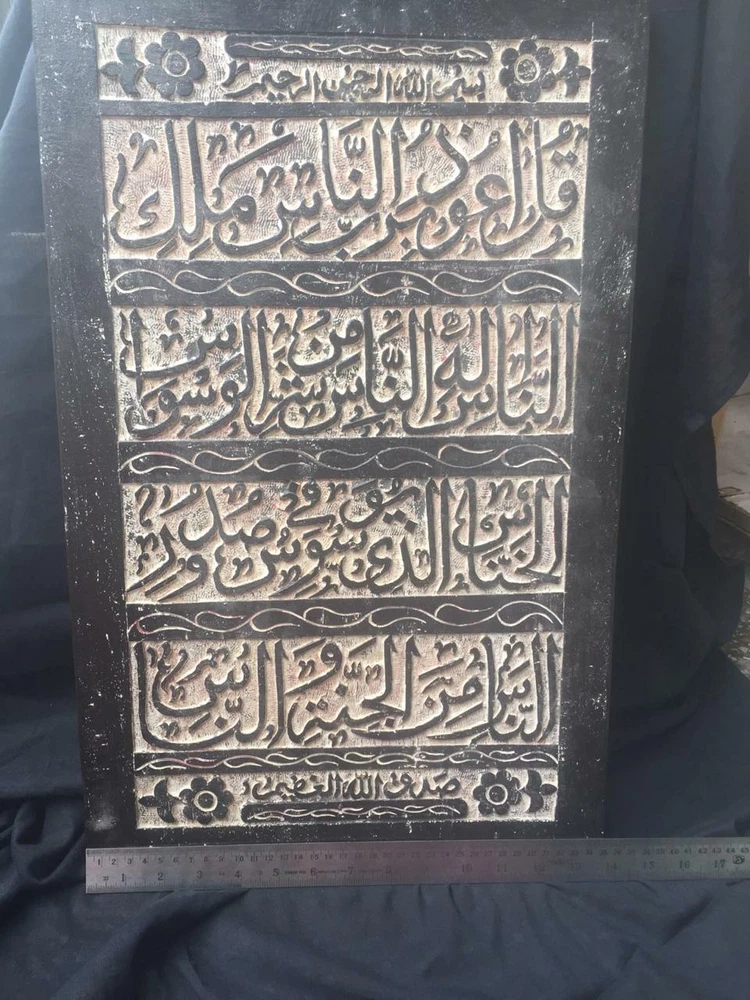 بسم الله الرحمن الرحيم
قُل اَعُوذُ بِرَبِّ النَّاسِ مَلِكِ
النَّاسِ اِلٰهِ النَّاسِ مِن شَرِّ الوَسوَاسِ
الخَنَّاسِ الَّذِى يُوَسوِسُ فِى صُدُورِ
النَّاسِ مِنَ الجِنَّةِ وَ النَّاسِ
صدق الله العظيم
1 2 3 4 5 6 7 8 9 10 11 12 13 14 15 16 17